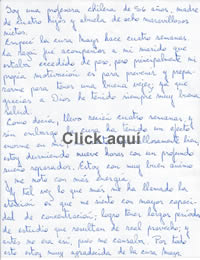 Soy una profesora chilena de 56 años, madre
de cuatro hijos y abuela de ocho maravillosos
nietos.
Empecé la cura Maya hace cuatro semanas.
La seguí por acompañar a mi marido que
estaba excedido de peso, pero principalmente mi
propia motivación es para prevenir y prepa-
rarme para tener una buena vejez, ya que
gracias a Dios he tenido siempre muy buena
salud.
Como decía, llevo recién cuatro semanas y
sin embargo la cura ha tenido un efecto
enorme en mi
estoy durmiendo nueve horas con un profundo
sueño reparador. Estoy con muy buen ánimo
y me noto con más energía.
Y tal vez lo que más me ha llamado la
atención es que me siento con mayor capaci-
dad de concentración; logro tener largos períodos
de estudio que resultan de real provecho; y
antes no era así, pues me cansaba. Por todo
esto estoy muy agradecida de la cura Maya.
Click aquí